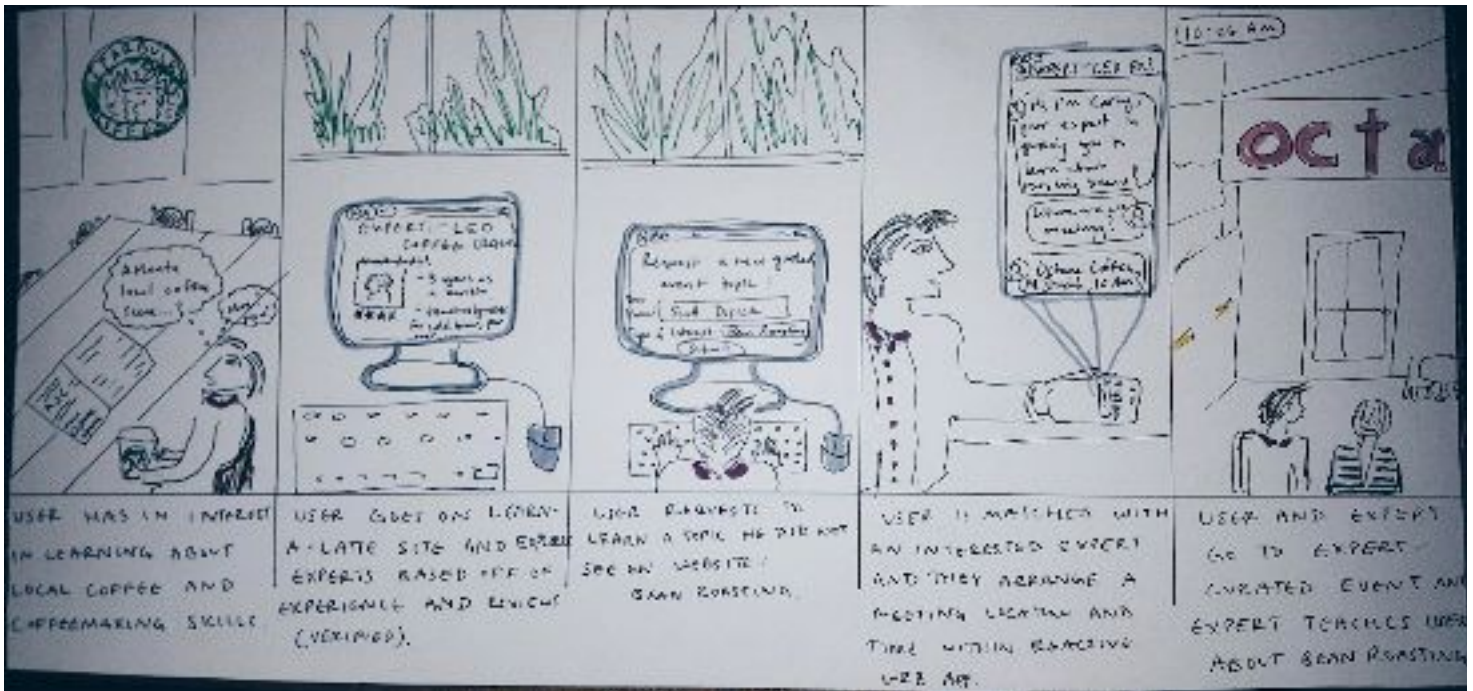 STARBUCKS
COFFEE
Atlanta
local coffee
scene...?
EXPERT-LED
COFFEE
- 5 years as
a barista
Request a new guided
event topic!
Scott
Interest: Bean Roasting
Hi I'm
your expert
you to
learn about
roasting
meeting
Octane Coffee,
10 AM
10:06 AM
octa
USER HAS AN INTEREST
IN LEARNING ABOUT
LOCAL COFFEE AND
COFFEEMAKING SKILLS
USER GOES ON LEARN-
A-LATTE SITE AND
EXPERTS BASED OFF OF
EXPERIENCE AND REVIEWS
(VERIFIED).
USER REQUESTS TO
LEARN A TOPIC HE DID NOT
SEE ON WEBSITE:
BEAN ROASTING.
USER IS MATCHED WITH
AN INTERESTED EXPERT
AND THEY ARRANGE A
MEETING LOCATION AND
TIME WITHIN REACTIVE
WEB APP.
USER AND EXPERT
GO TO EXPERT-
CURATED EVENT AND
EXPERT TEACHES USER
ABOUT BEAN ROASTING